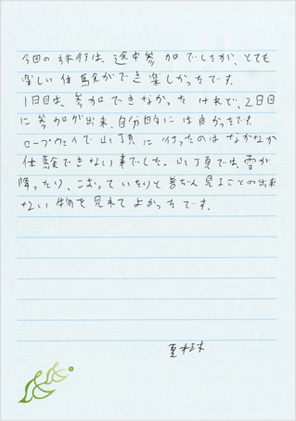 今回の旅行は、途中参加でしたが、とても
楽しい体験ができ楽しかったです。
1日目は、参加できなかったけれど、2日目
に参加が出来、自分的には良かったです。
ロープウェイで山頂に行ったのはなかなか
体験できない事でした。山頂では、雪が
降ったり、こおっていたりと普だん見ることの出来
ない物を見れてよかったです。